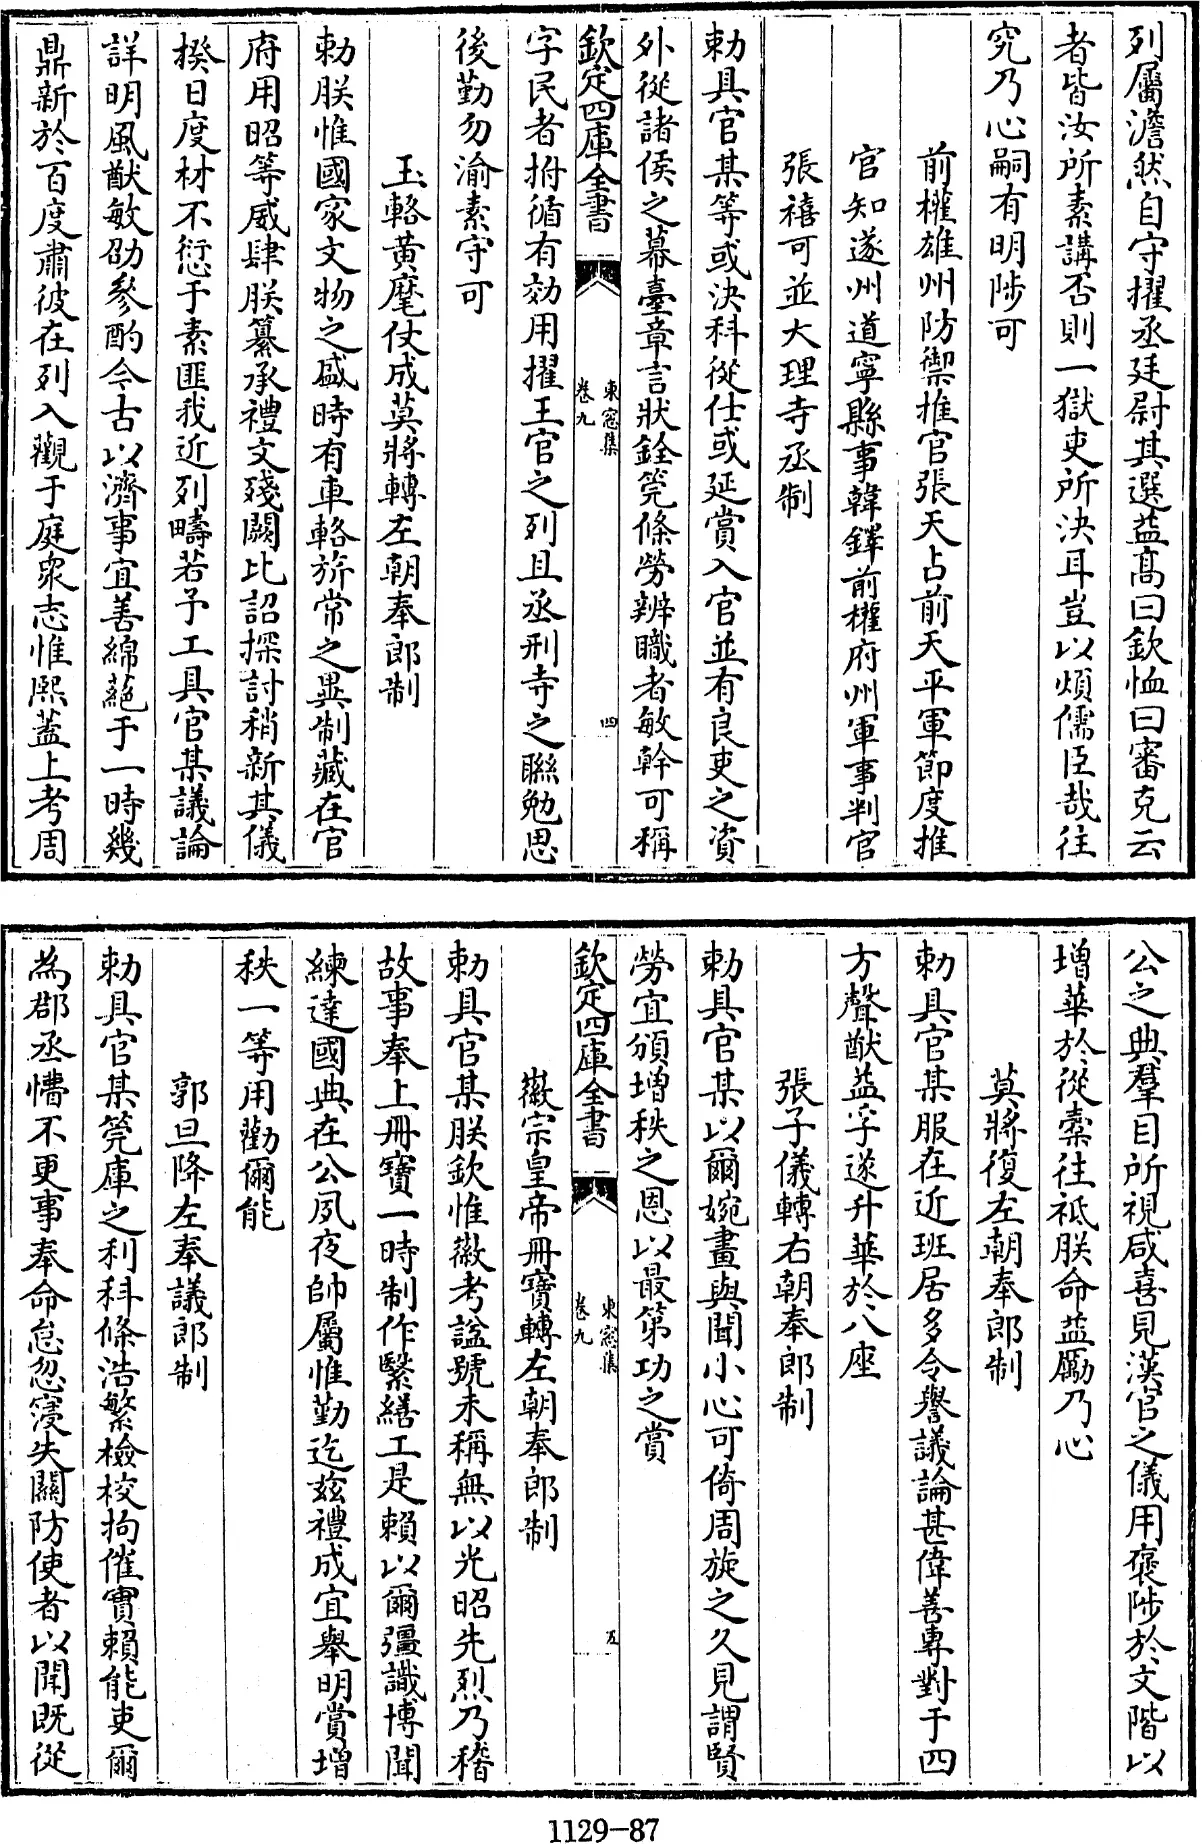 列屬澹然自守擢丞廷尉其選益髙曰欽恤曰審克云
者皆汝所素講否則一獄吏所決耳豈以煩儒臣哉往
究乃心嗣有明陟可
前權雄州防禦推官張天占前天平軍節度推
官知遂州道寧縣事韓鐸前權府州軍事判官
張禧可並大理寺丞制
勅具官某等或決科從仕或延賞入官並有良吏之資
外從諸侯之幕臺章言狀銓筦條勞辨職者敏幹可稱
欽定四庫全書
東窓集
卷九
四
字民者拊循有効用擢王官之列且丞刑寺之聯勉思
後勤勿渝素守可
玉輅黄麾仗成莫將轉左朝奉郎制
勅朕惟國家文物之盛時有車輅旂常之異制藏在官
府用昭等威肆朕纂承禮文殘闕比詔探討稍新其儀
揆日度材不愆于素匪我近列疇若予工具官某議論
詳明風猷敏劭參酌今古以濟事宜善綿蕝于一時幾
鼎新於百度肅彼在列入觀于庭衆志惟熙蓋上考周
公之典羣目所視咸喜見漢官之儀用褒陟於文階以
增華於從橐往祗朕命益勵乃心
莫將復左朝奉郎制
勅具官某服在近班居多令譽議論甚偉善專對于四
方聲猷益孚遂升華於八座
張子儀轉右朝奉郎制
勅具官某以爾婉畫與聞小心可倚周旋之久見謂賢
勞宜頒增秩之恩以最第功之賞
欽定四庫全書
東窓集
卷九
五
徽宗皇帝冊寶轉左朝奉郎制
勅具官某朕欽惟徽考諡號未稱無以光昭先烈乃稽
故事奉上冊寶一時制作繄繕工是賴以爾彊識博聞
練達國典在公夙夜帥屬惟勤迄兹禮成宜舉明賞增
秩一等用勸爾能
郭旦降左奉議郎制
勅具官某筦庫之利科條浩繁檢校拘催實賴能吏爾
為郡丞懵不更事奉命怠忽寖失關防使者以聞既從
1129-87